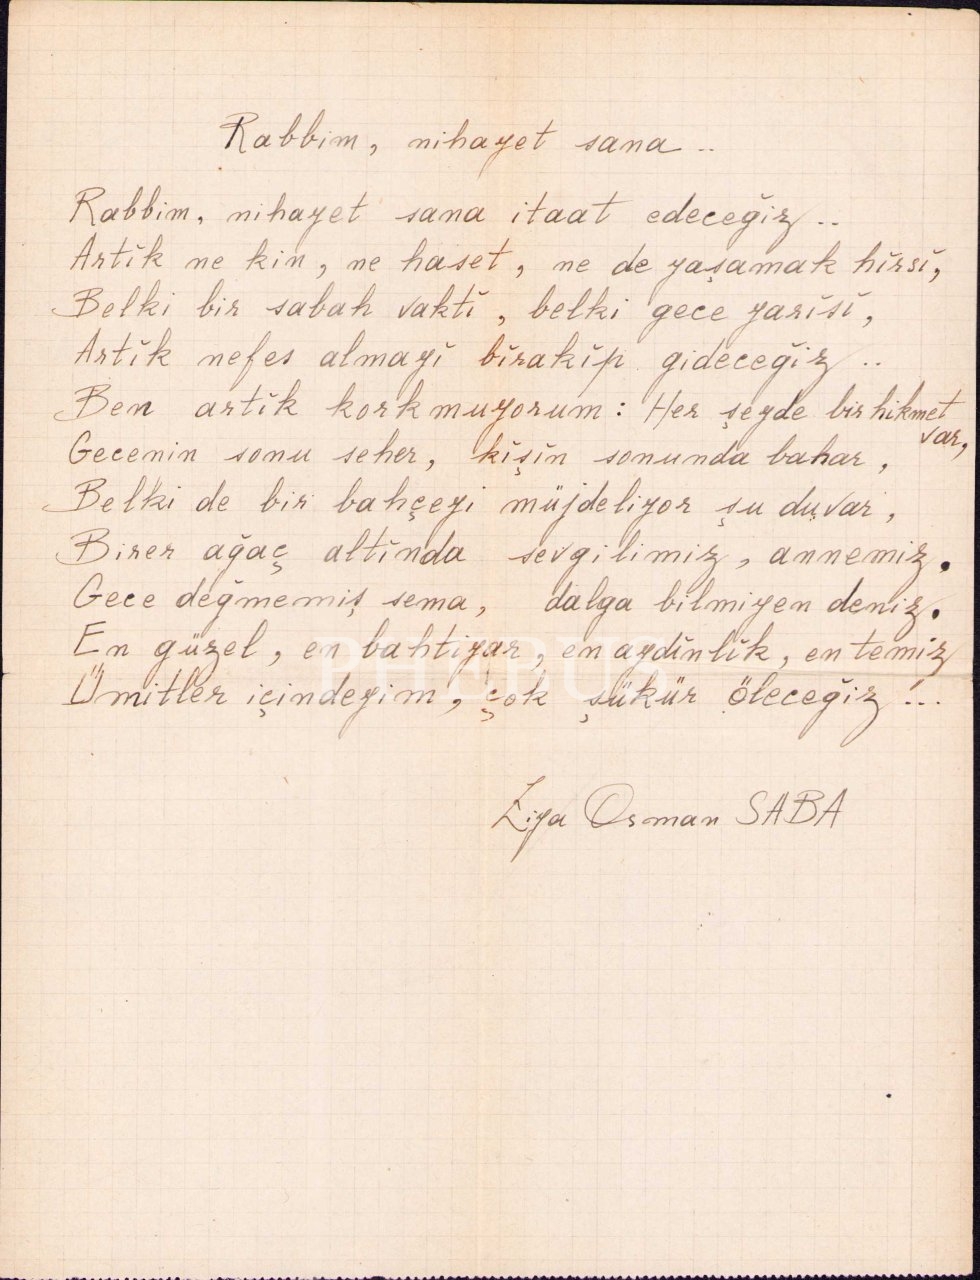 Rabbim, nihayet sana ..
Rabbim, nihayet sana itaat edeceğiz ..
Artîk ne kin, ne haset, ne de yaşamak hîrsî,
Belki bir sabah vaktî, belki gece yarîsî,
Artîk nefes almayî bîrakîp gideceğiz ..
Ben artîk korkmuyorum: Her şeyde bir hikmet
var,
Gecenin sonu seher, kîşîn sonunda bahar,
Belki de bir bahçeyi müjdeliyor şu duvar,
Birer ağaç altînda sevgilimiz, annemiz.
Gece değmemiş sema, dalga bilmiyen deniz.
En güzel, en bahtiyar, en aydînlîk, en temiz
Ümitler içindeyim, çok şükür öleceğiz ...
PHEBUS
Ziya Osman SABA